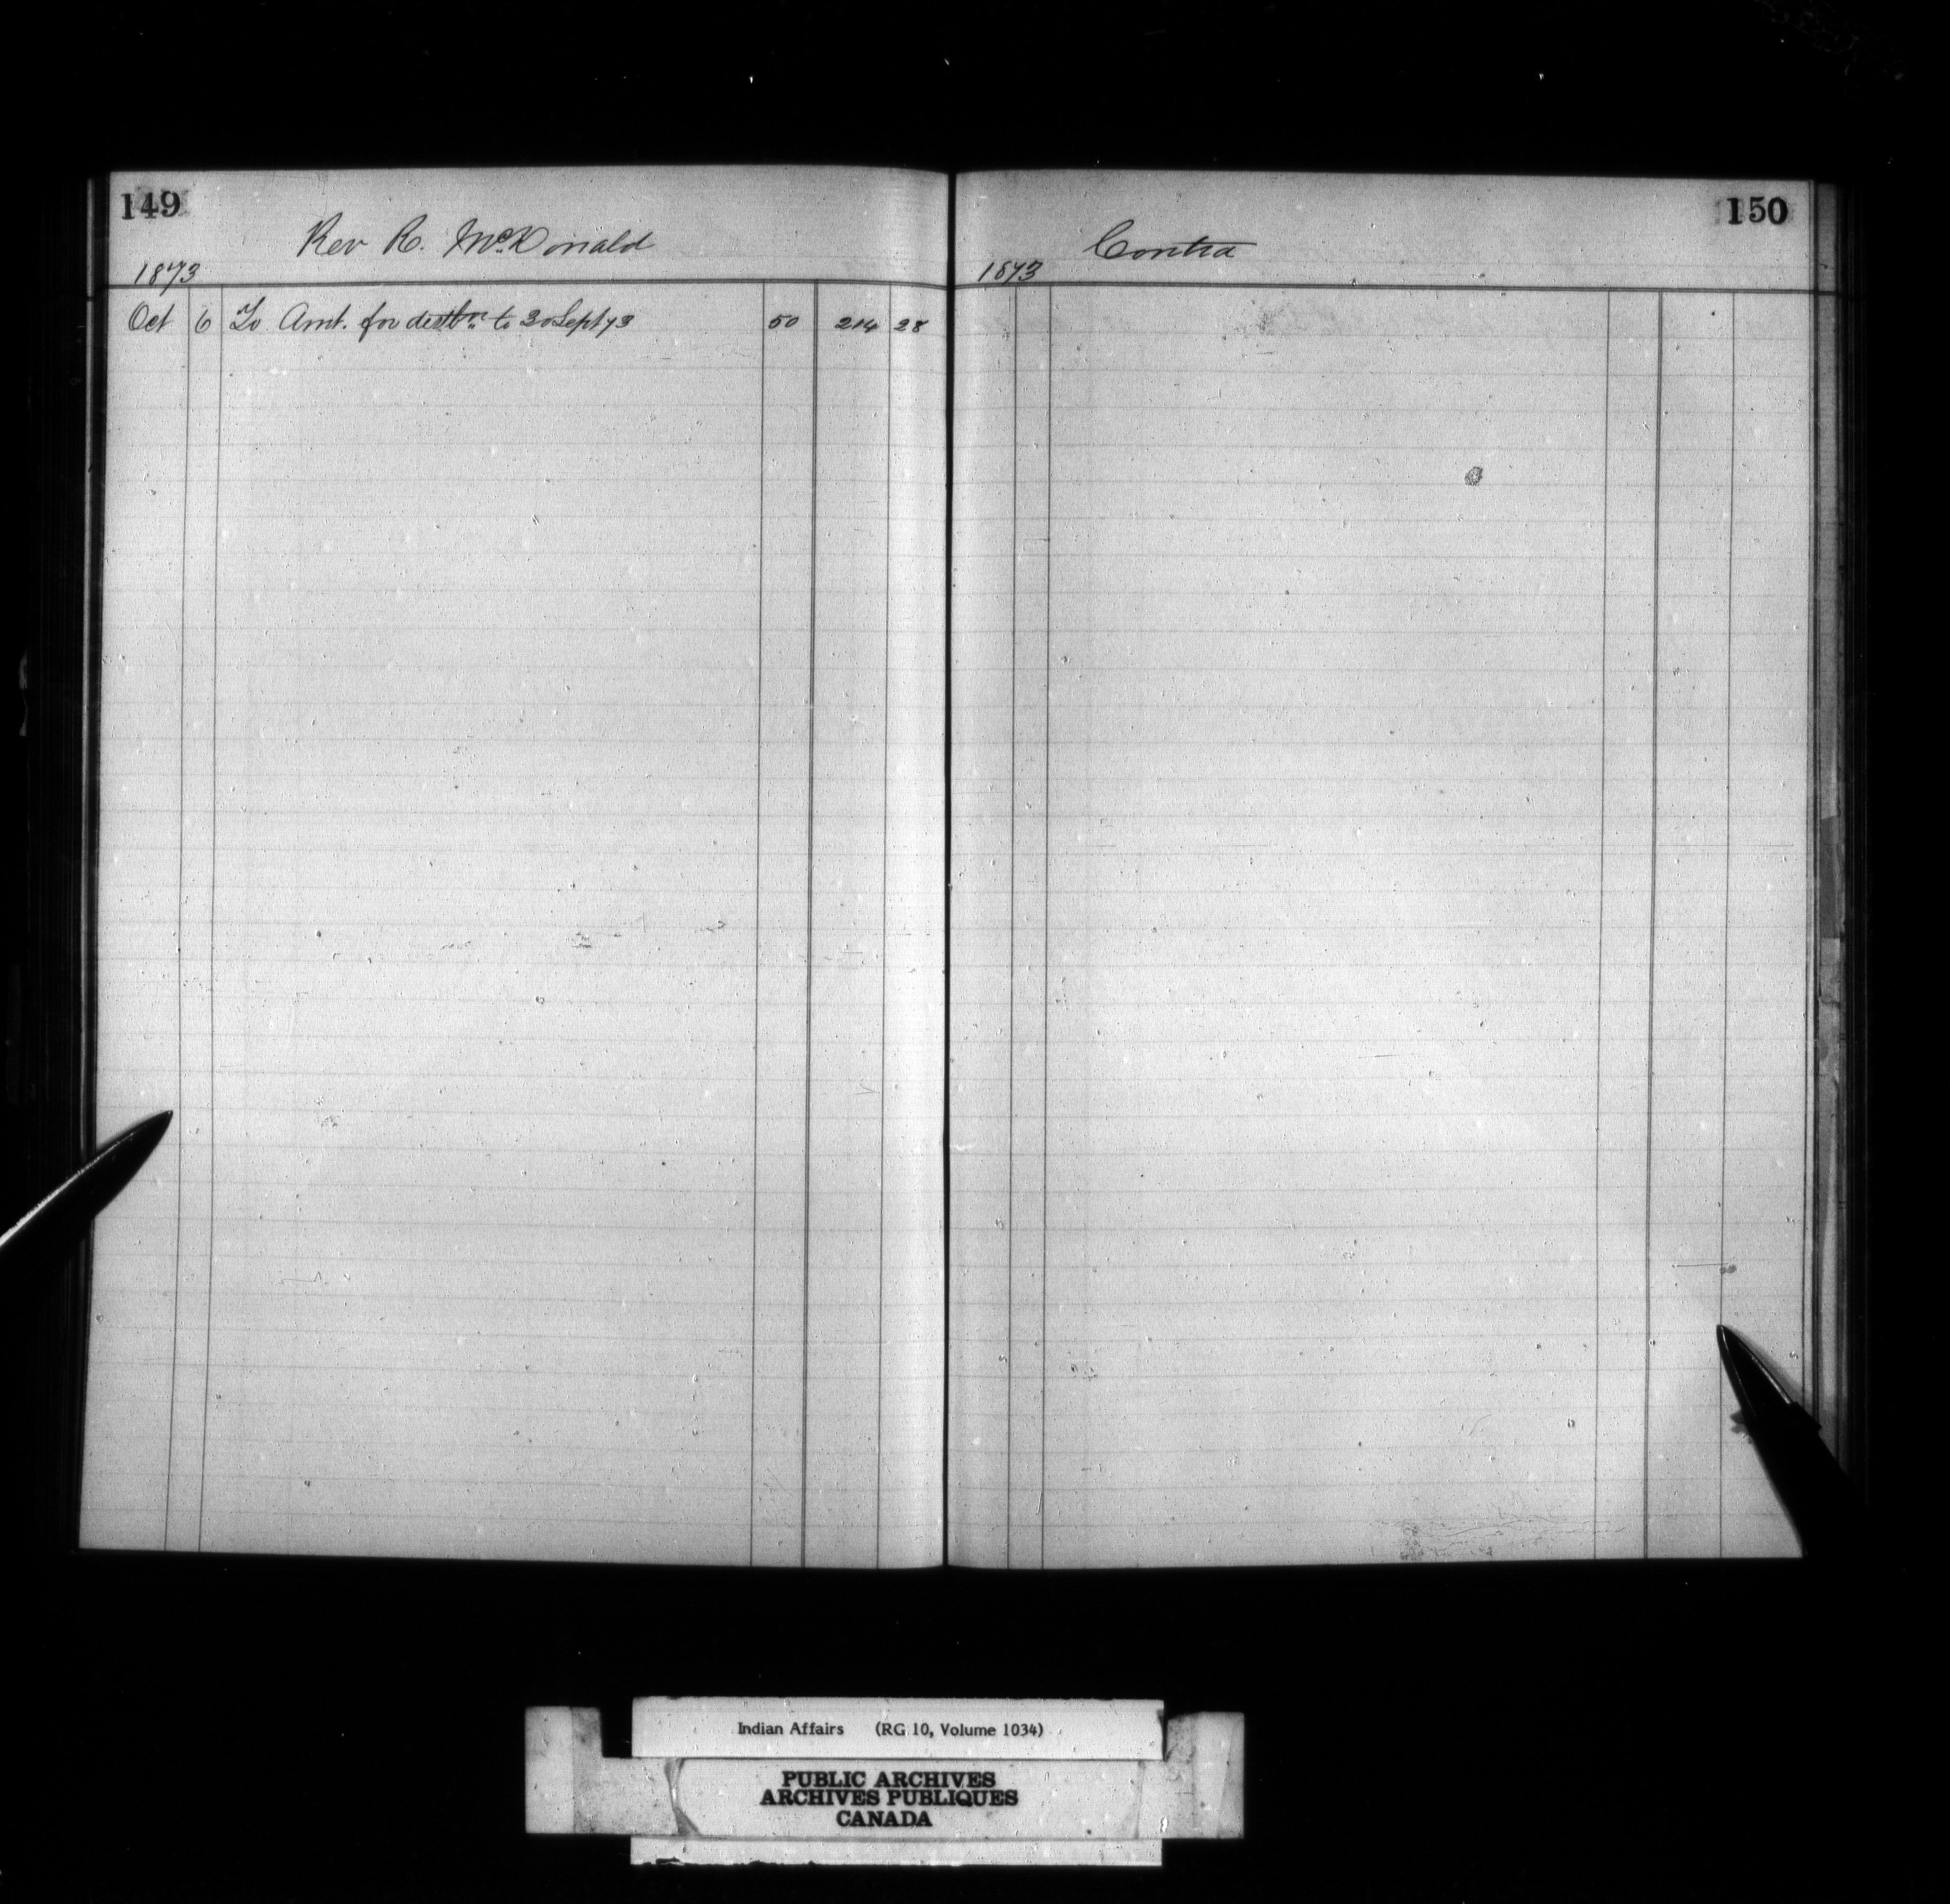 149
Rev R. McDonald
1873
Oct 6 To Amt. for distbn to 30 Sept 73 50 214 28
150
Contra
1873
Indian Affairs (RG 10, Volume 1034)
PUBLIC ARCHIVES
ARCHIVES PUBLIQUES
CANADA